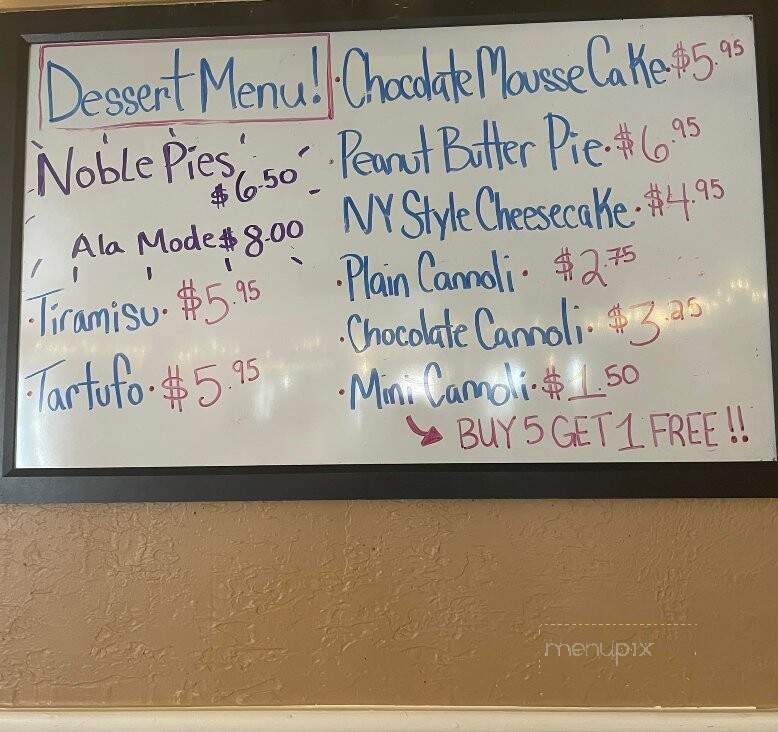 Dessert Menu!
Noble Pies
$6.50
Ala Mode $8.00
·Tiramisu· $5.95
·Tartufo· $5.95
·Chocolate Mousse Cake· $5.95
·Peanut Butter Pie· $6.95
NY Style Cheesecake· $4.95
·Plain Cannoli· $2.75
·Chocolate Cannoli· $3.25
·Mini Cannoli· $1.50
BUY 5 GET 1 FREE!!
menupix